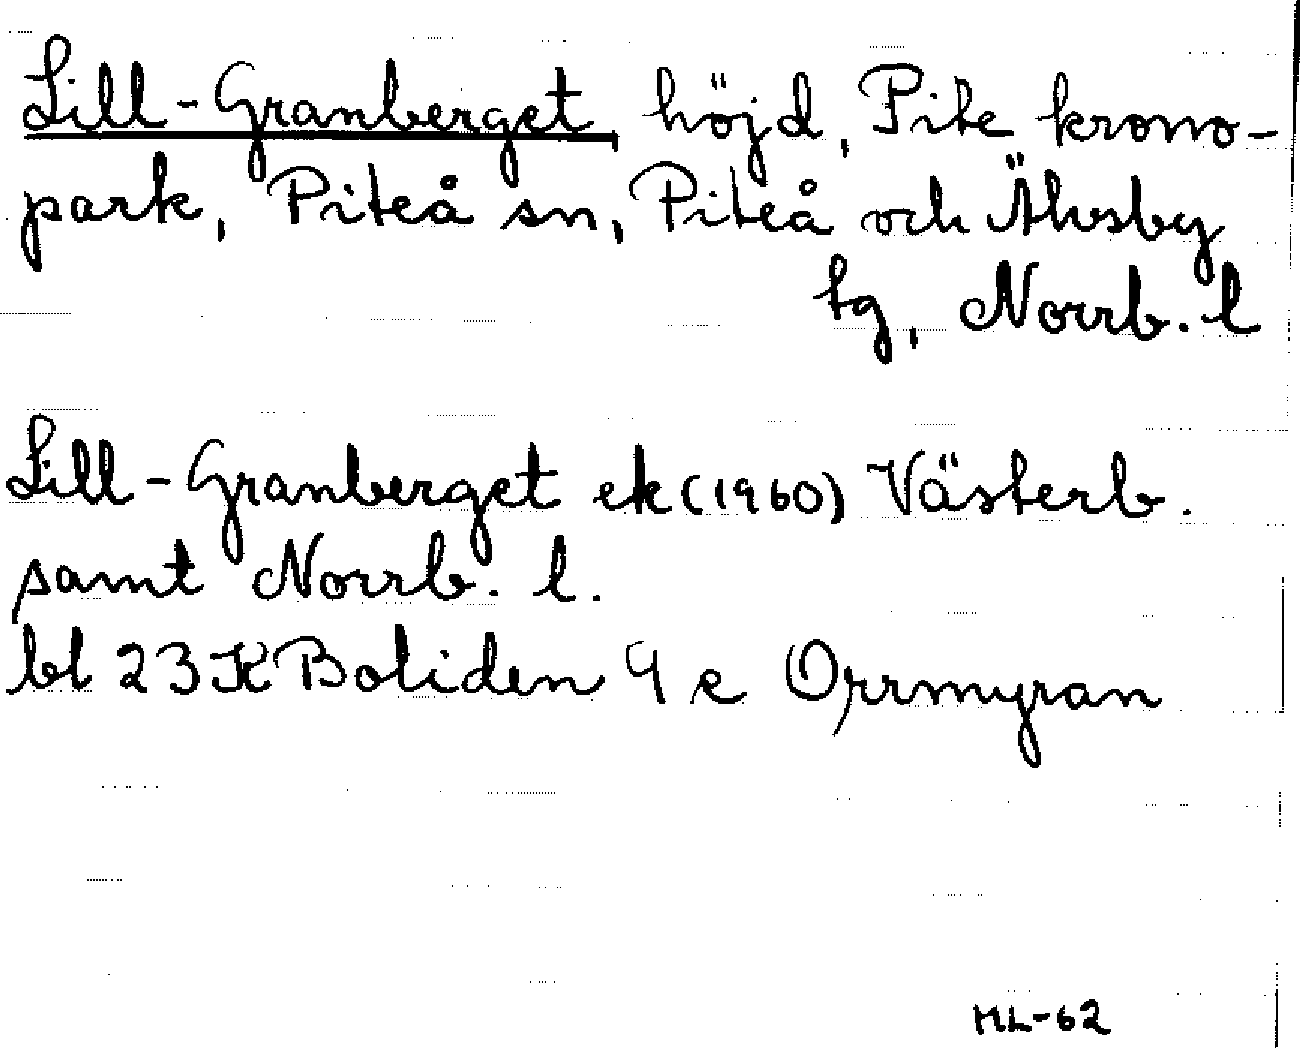 Lill-Granberget höjd, Pite krono-
park, Piteå sn, Piteå och Älvsby
tg, Norrb. l
Lill-Granberget ek (1960) Västerb.
samt Norrb. l.
bl 23 K Boliden 9 e Orrmyran
ML-62